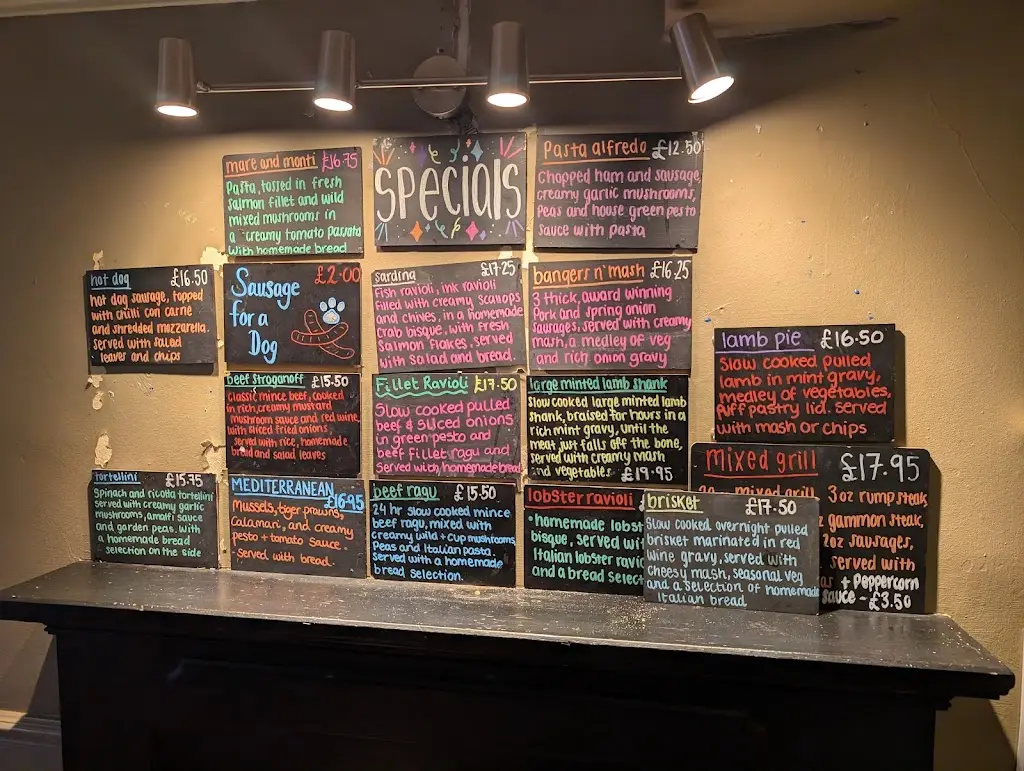 mare and monti £16.75
Pasta, tossed in fresh
salmon fillet and wild
mixed mushrooms in
a creamy tomato passata
with homemade bread
SPECIALS
Pasta alfredo £12.50
Chopped ham and sausage,
creamy garlic mushrooms,
Peas and house green pesto
sauce with pasta
hot dog £16.50
hot dog sausage, topped
with chilli con carne
and shredded mozzarella.
served with salad
leaves and chips
Sausage £2.00
for a
Dog
sardina £17.25
Fish ravioli, ink ravioli
filled with creamy scallops
and chives, in a homemade
crab bisque, with fresh
salmon flakes. served
with salad and bread.
bangers n' mash £16.25
3 thick, award winning
Pork and spring onion
sausages, served with creamy
mash, a medley of veg
and rich onion gravy
lamb pie £16.50
Slow cooked pulled
lamb in mint gravy,
medley of vegetables,
puff pastry lid. served
with mash or chips
beef stroganoff £15.50
classic mince beef, cooked
in rich, creamy mustard
mushroom sauce and red wine
with sliced fried onions,
served with rice, homemade
bread and salad leaves
Fillet Ravioli £17.50
Slow cooked pulled
beef & sliced onions
in green pesto and
beef fillet ragu and
served with, homemade bread
large minted lamb shank
slow cooked large minted lamb
shank, braised for hours in a
rich mint gravy, until the
meat just falls off the bone,
served with creamy mash
and vegetables £19.95
mixed grill £17.95
mixed grill 3oz rump steak
gammon steak,
2oz sausages,
served with
+ Peppercorn
sauce - £3.50
tortellini £15.75
Spinach and ricotta tortellini
served with creamy garlic
mushrooms, amalfi sauce
and garden peas. with
a homemade bread
selection on the side
MEDITERRANEAN £16.95
Mussels, tiger prawns,
calamari, and creamy
pesto + tomato sauce.
served with bread.
beef ragu £15.50
24 hr slow cooked mince
beef ragu, mixed with
creamy wild + cup mushrooms,
Peas and Italian pasta
served with a homemade
bread selection.
lobster ravioli
homemade lobst
bisque, served wit
Italian lobster ravio
and a bread select
brisket £17.50
Slow cooked overnight pulled
brisket marinated in red
wine gravy, served with
cheesy mash, seasonal veg
and a selection of homemade
Italian bread